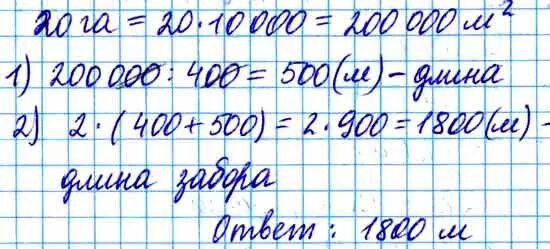 20 га = 20·10 000 = 200 000 м²
1) 200 000 : 400 = 500 (м) – длина
2) 2·(400+500) = 2·900 = 1800 (м) –
длина забора
Ответ: 1800 м